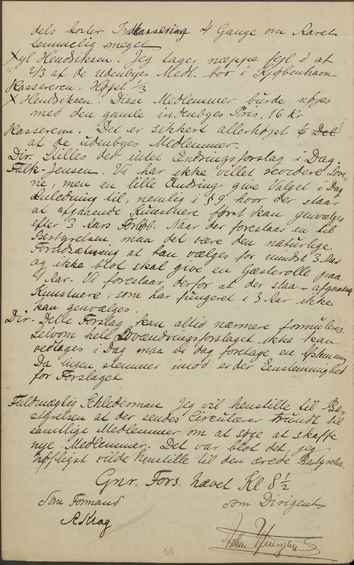 dels koster Inkassering 4 Gange om Aaret
temmelig meget
Hendriksen. Jeg tager næppe fejl i at
2/3 af de udenbyes Medl. bor i Kjøbenhavn
Kassereren. Højst 1/3
Hendriksen. Disse Medlemmer burde nøjes
med den gamle indenbyes Pris, 16 Kr
Kassereren. Det er sikkert allerhøjst 1/6 Del
af de udenbyes Medlemmer.
Dir. Stilles det intet Ændringsforslag i Dag
Falk-Jensen. Vi har ikke villet revidere Love
ne, men en lille Ændring give Valget i Dag
Anledning til, nemlig i § 9, hvor der staar
at afgaaende Kunstnere først kan genvælges
efter 3 Aars Forløb. Naar der foreslaas en til
Bestyrelsen maa det være den naturlige
Forudsætning at han vælges for mindst 3 Aar
og ikke blot skal give en Gæsterolle paa
1 Aar. Vi foreslaar derfor at der staar afgaaende
Kunstnere, som har fungeret i 3 Aar ikke
kan genvælges.
Dir. Dette Forslag kan altid nærmere formuleres.
Selvom hele Lovændringsforslaget ikke kan
vedtages i Dag maa vi dog foretage en
Da ingen stemmer imod er der Enstemmighed
for Forslaget
Fuldmægtig Schledermann Jeg vil henstille til Be-
styrelsen at der sendes Cirkulærer rundt til
samtlige Medlemmer om at søge at skaffe
nye Medlemmer. Det var blot det, jeg
højligst vilde henstille til den ærede Bestyrelse.
Gnr. Fors. hævet Kl 8½
Som Formand
som Dirigent
A Krag